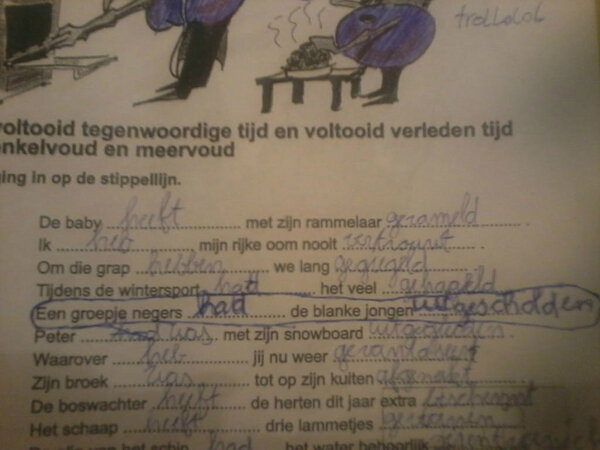 trollolol
voltooid tegenwoordige tijd en voltooid verleden tijd
enkelvoud en meervoud
ging in op de stippellijn.
De baby heeft met zijn rammelaar gerameld.
Ik heb mijn rijke oom nooit vertrouwt.
Om die grap hebben we lang gegiegeld.
Tijdens de wintersport had het veel gehageld.
Een groepje negers had de blanke jongen uitgescholden
Peter was met zijn snowboard
Waarover heb jij nu weer
Zijn broek was tot op zijn kuiten afgezakt.
De boswachter heeft de herten dit jaar extra beschermt
Het schaap heeft drie lammetjes
had het water behoorlijk